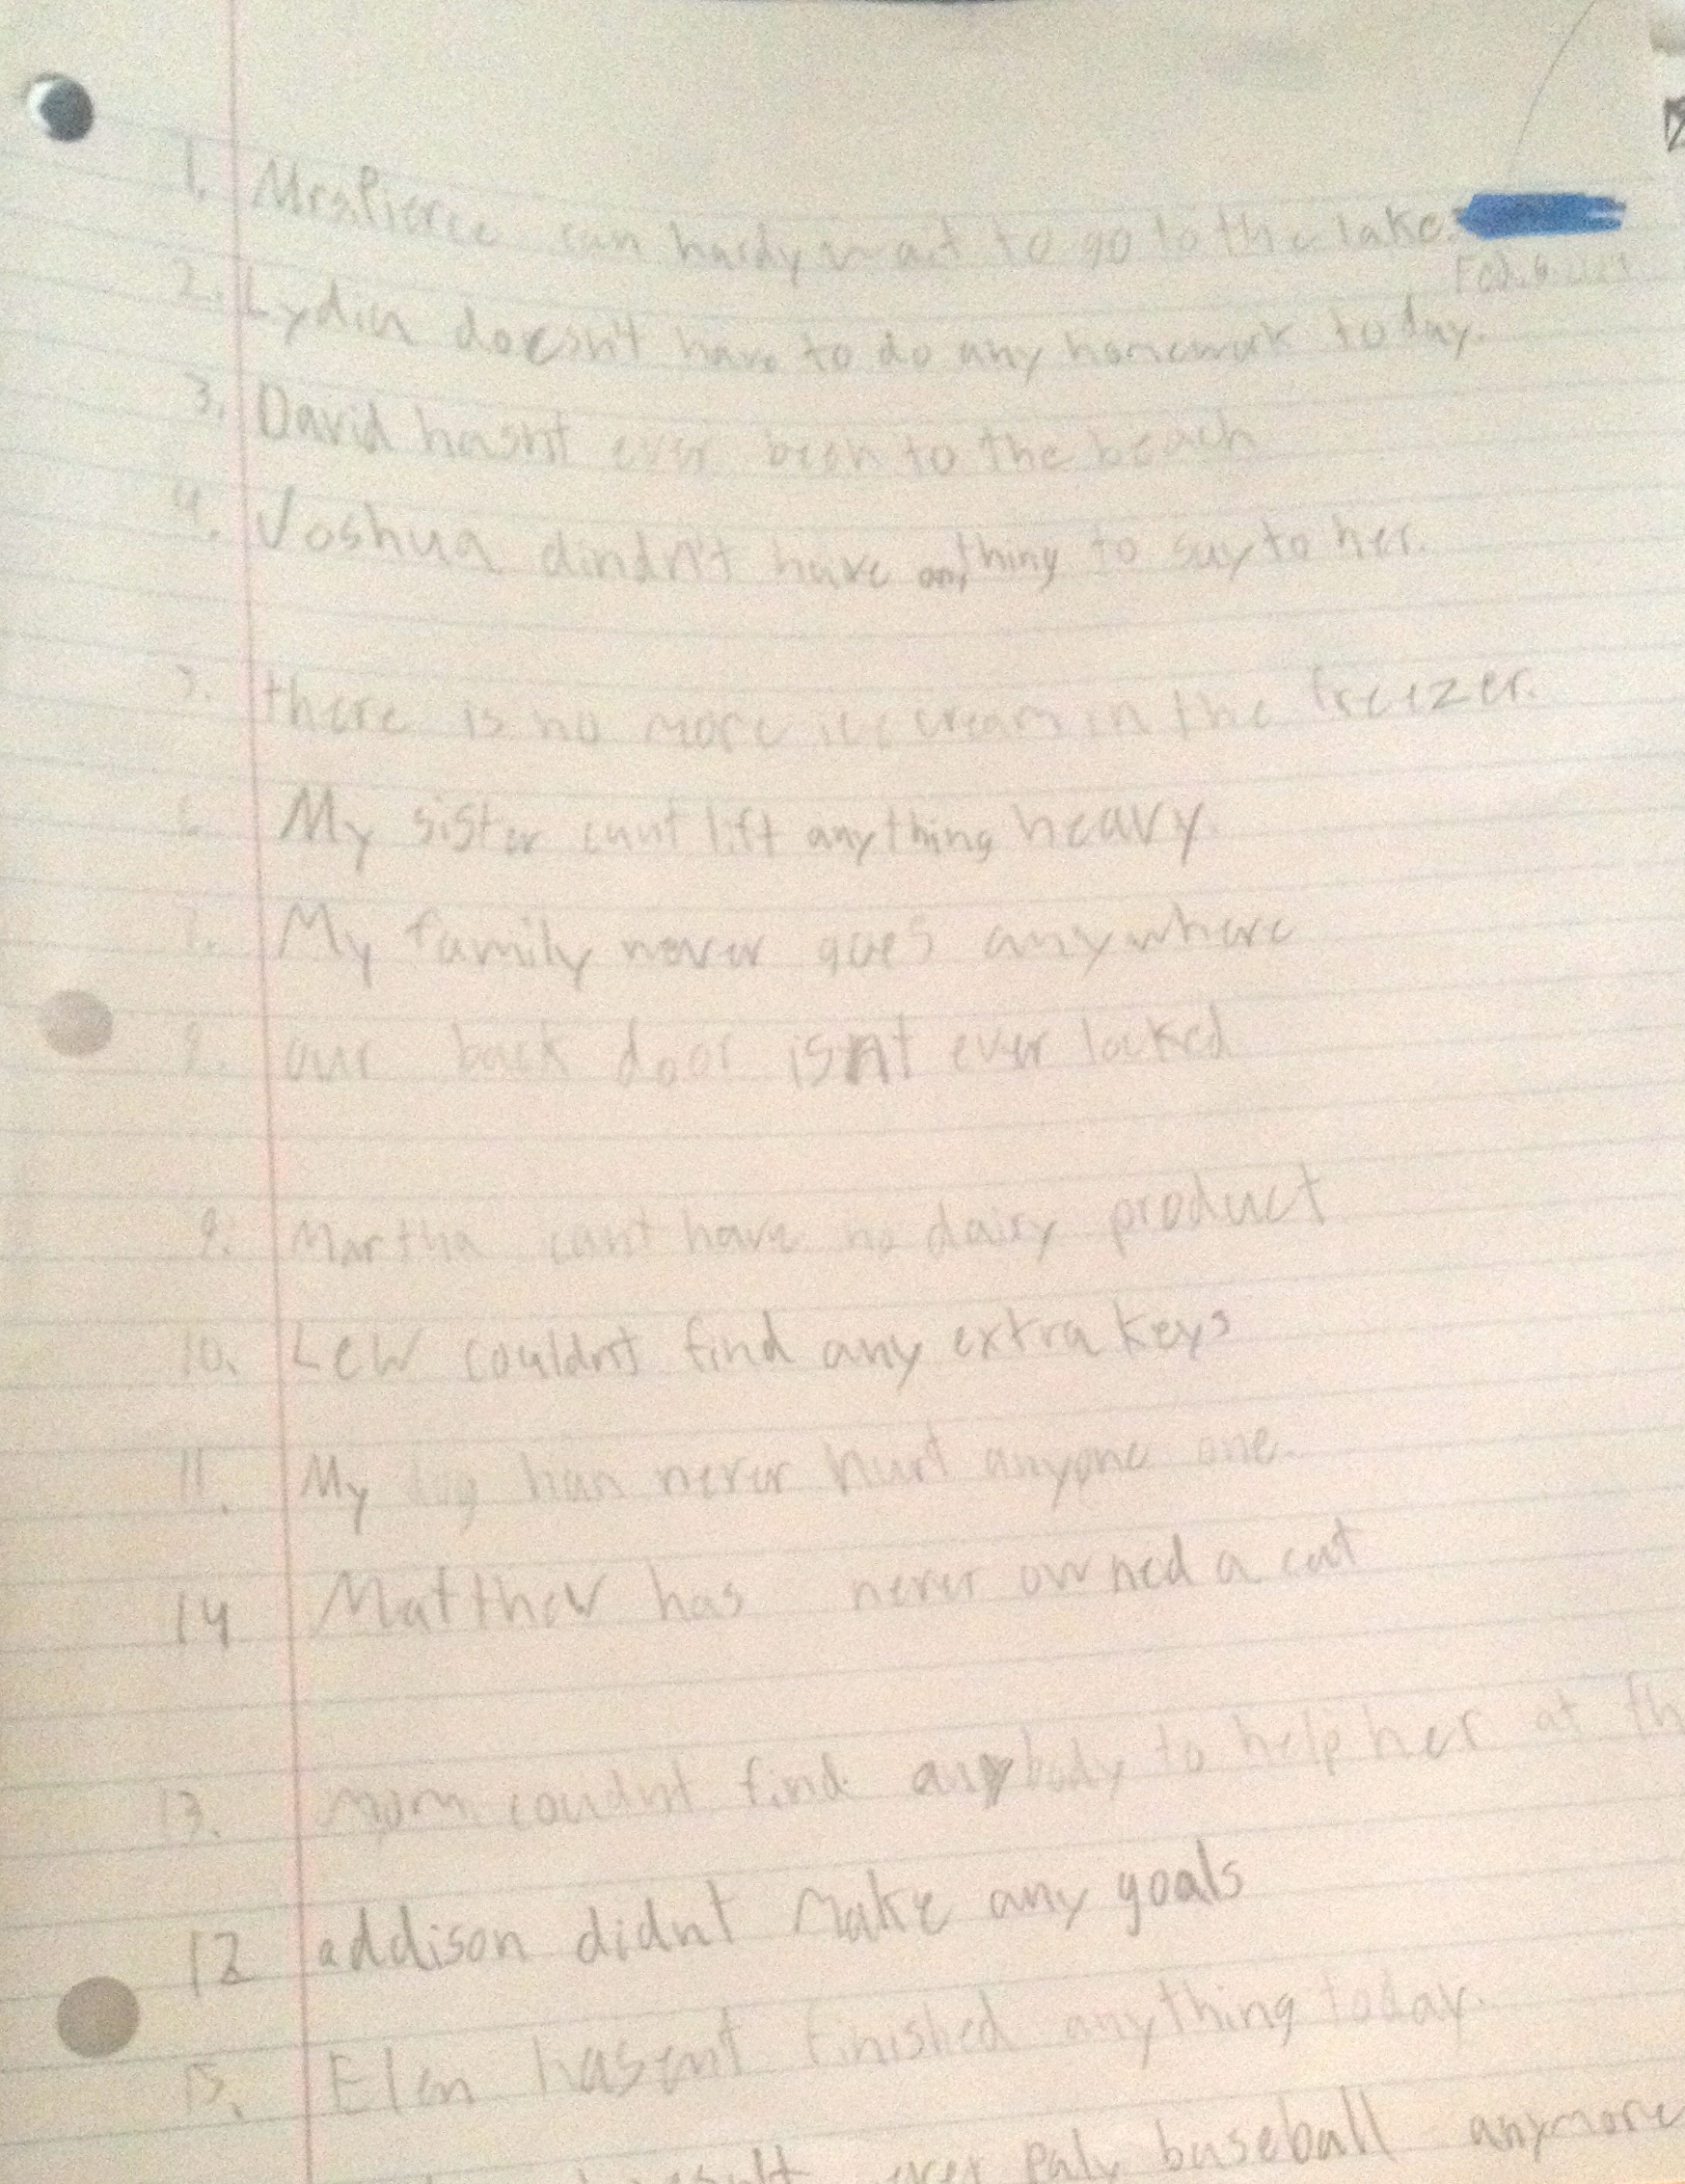 1. Mrs.Pierce can hardy wait to go to the lake.
Feb. 6
2. Lydia doesn't have to do any homework today.
3. David hasn't ever been to the beach
4. Joshua dindn't have anything to say to her.
5. there is no more ice cream in the freezer.
6. My sister cant lift anything heavy.
7. My family never goes anywhere
8. our back door isnt ever locked
9. Martha cant have no dairy product
10. Lew couldnt find any extra keys
11. My dog has never hurt anyone one.
14 Matthew has never owned a cat
13. mom coudnt find anybody to help her at th
12 addison didnt make any goals
15. Elen hasent finished anything today.
ever paly baseball anymore